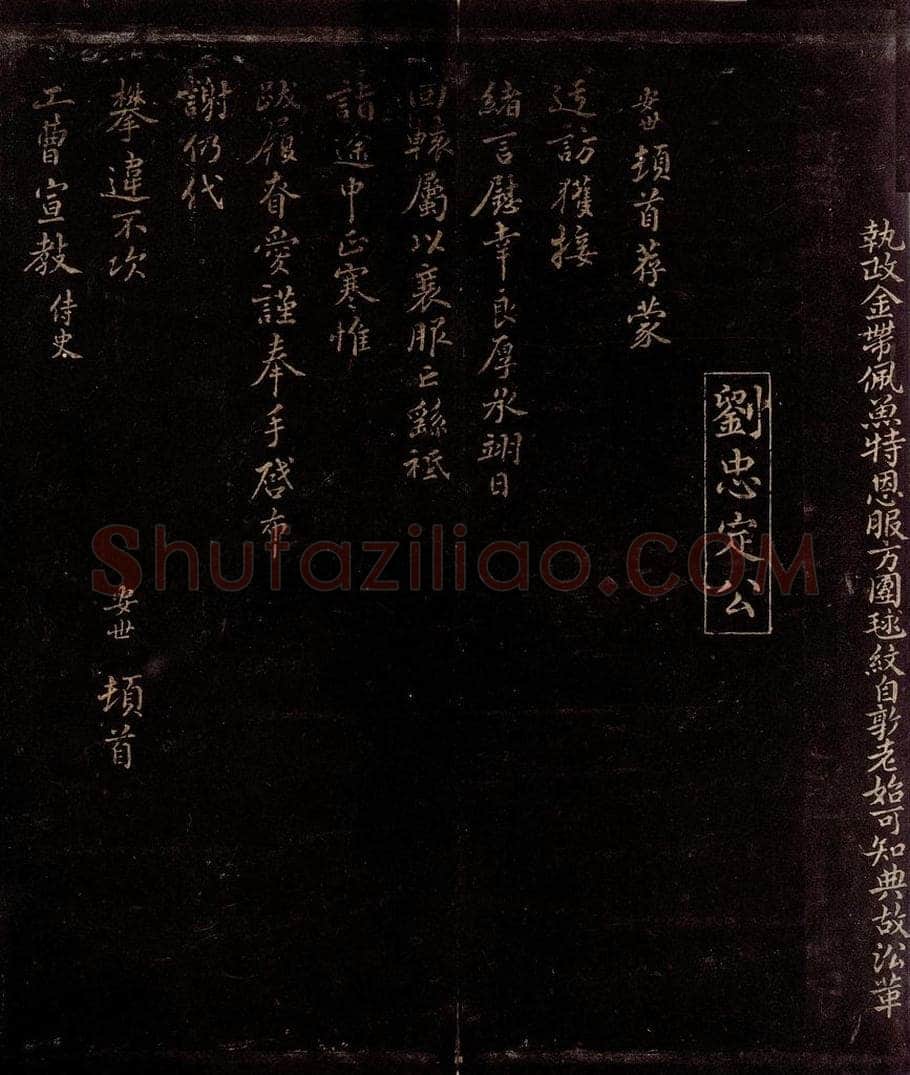 執政金帶佩魚特恩服方團毬紋自郭老始可知典故沿革
劉忠定公
安世頓首荐蒙
迂訪獲接
緒言慰幸良厚承翊日
回轅屬以衰服上繇祗
詣途中正寒惟
跋履眷愛謹奉手啓布
謝仍代
攀違不次
安世 頓首
工曹宣教 侍史
Shufaziliao.COM